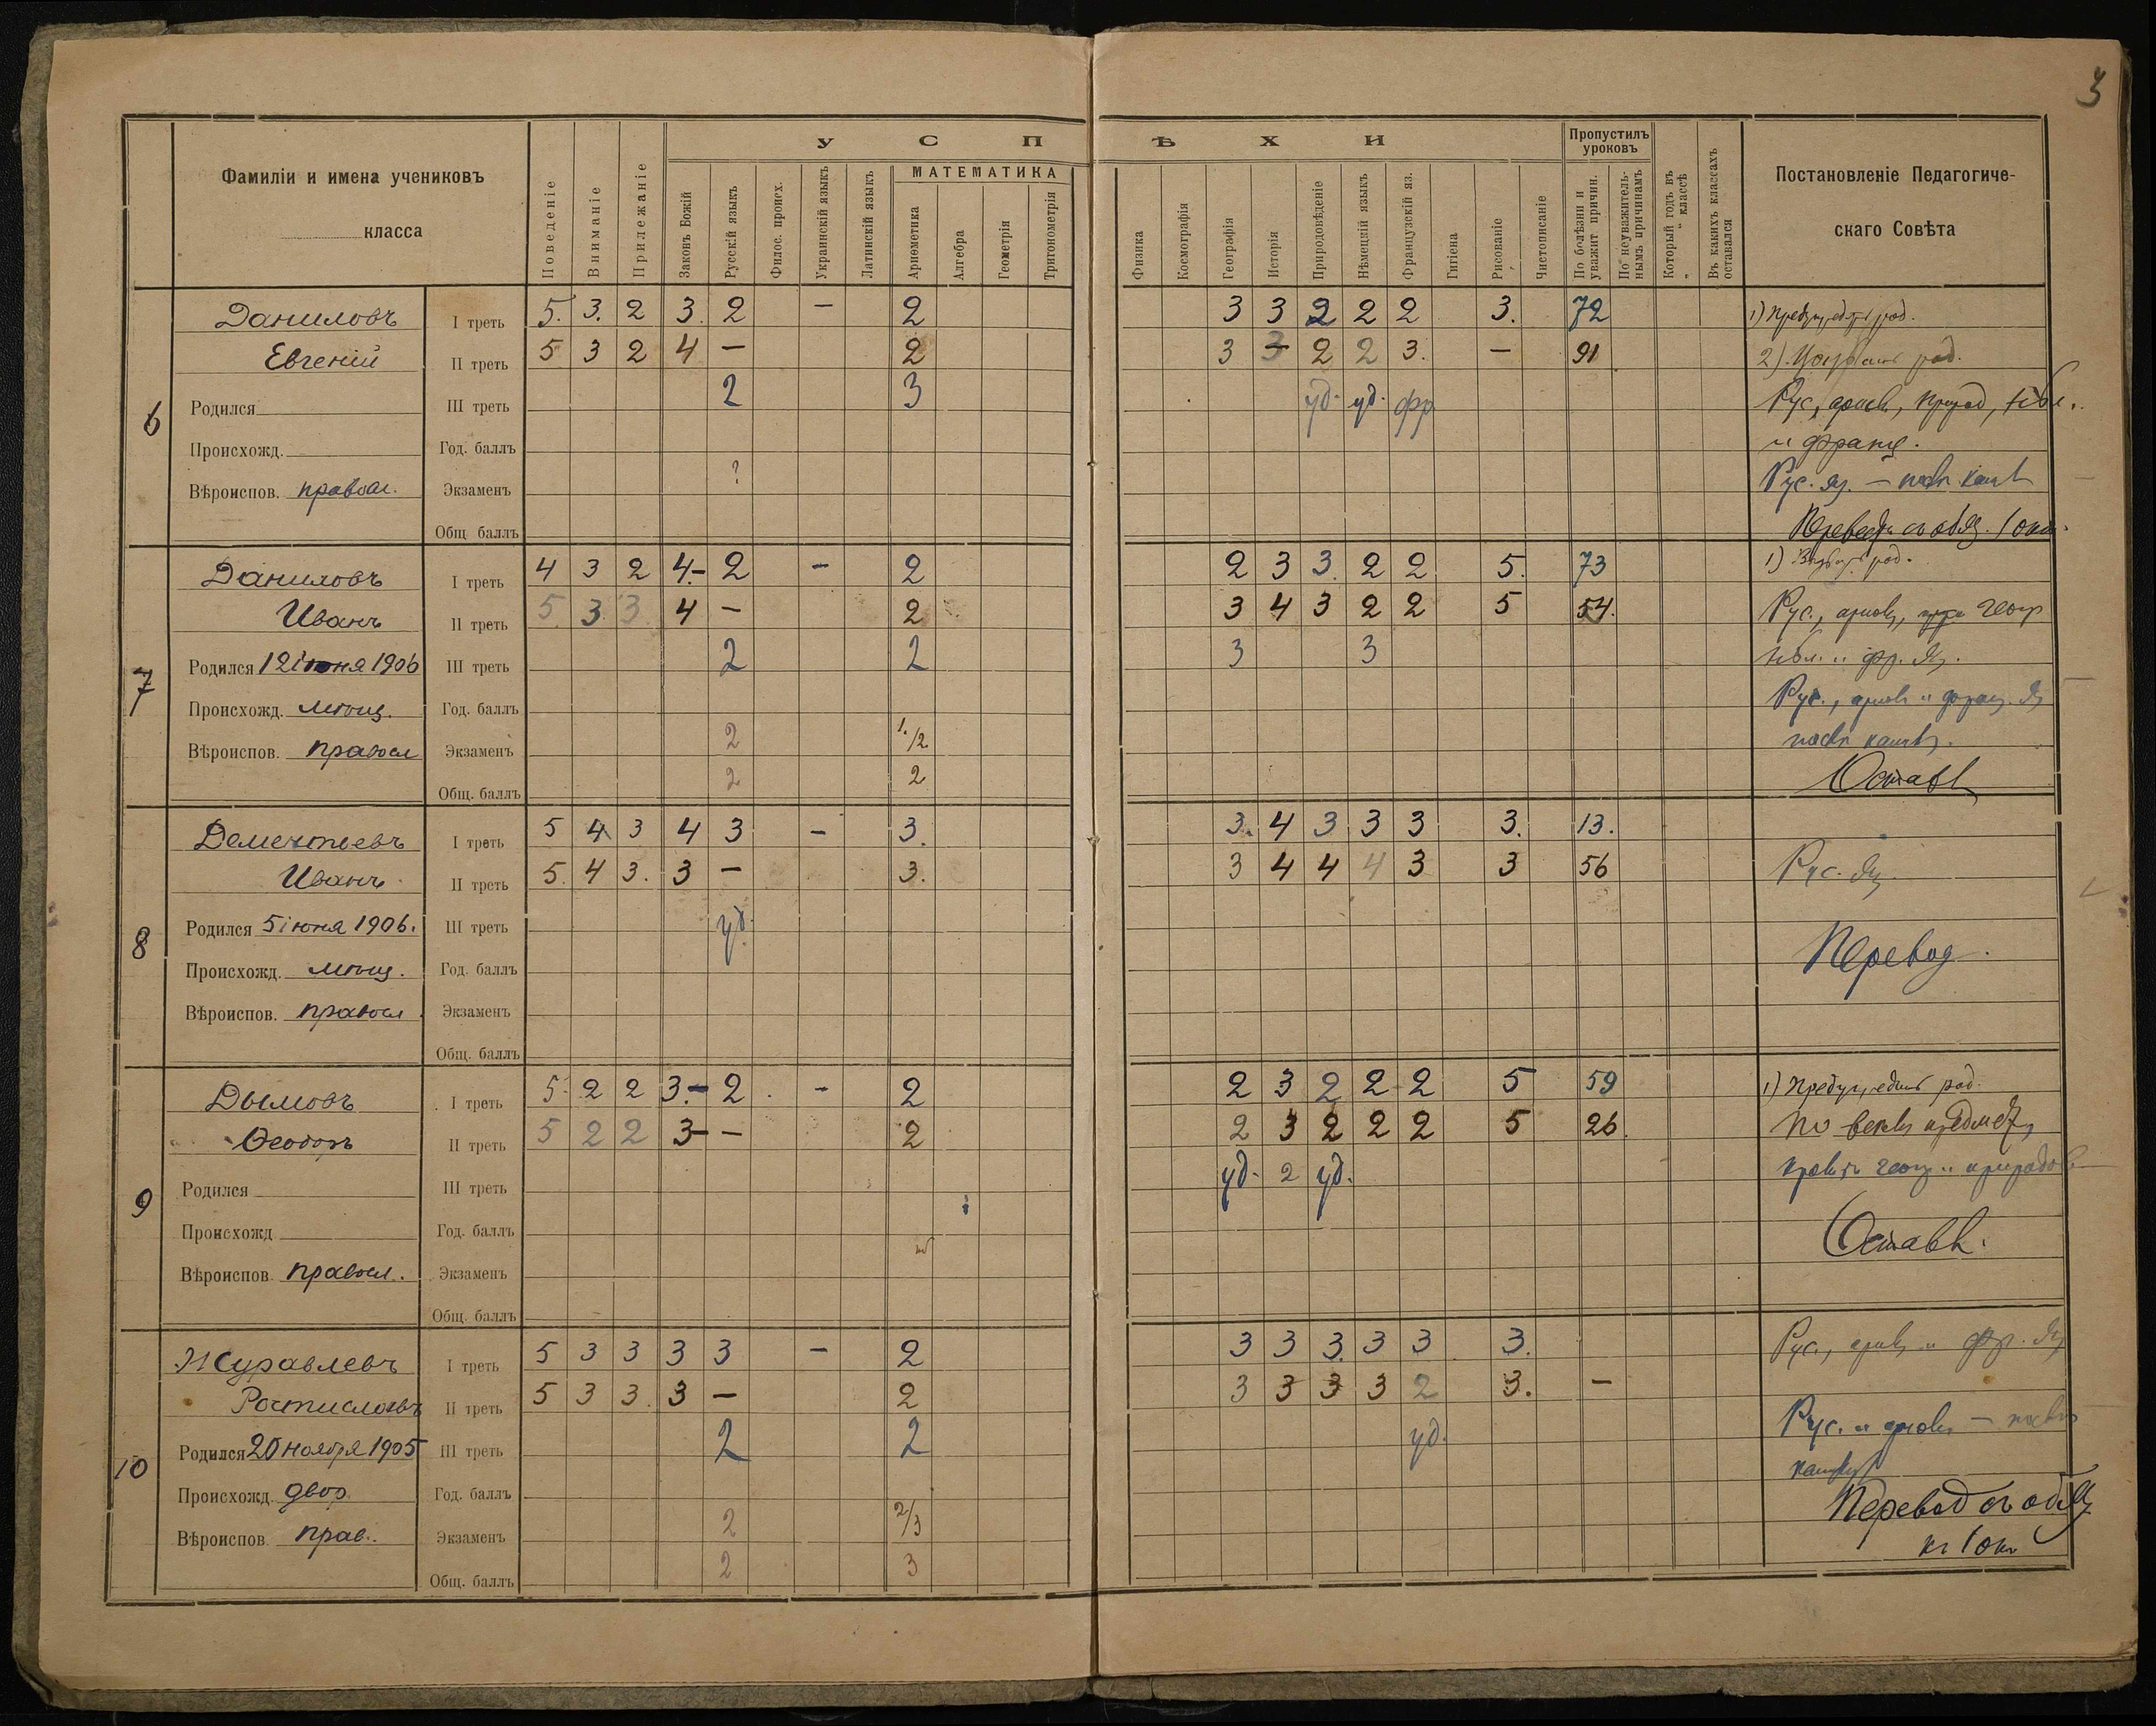 3
Фамиліи и имена учениковъ
класса
Поведеніе
Вниманіе
Прилежаніе
УСПѢХИ
Законъ Божій
Русскій языкъ
Филос. происх.
Украинскій языкъ
Латинскій языкъ
МАТЕМАТИКА
Ариѳметика
Алгебра
Геометрія
Тригонометрія
Физика
Космографія
Географія
Исторія
Природовѣденіе
Нѣмецкій языкъ
Французскій яз.
Гигіена
Рисованіе
Чистописаніе
Пропустилъ уроковъ
По болѣзни и уважит причин.
По неуважитель-нымъ причинамъ
Который годъ въ „ “ классѣ
Въ какихъ классахъ оставался
Постановленіе Педагогиче-
скаго Совѣта
6
Даниловъ
Евгеній
Родился
Происхожд.
Вѣроиспов. правосл.
I треть 5. 3. 2 3. 2 — 2 3 3 2 2 2 3. 72
II треть 5 3 2 4 — 2 3 3 2 2 3. — 91
III треть 2 3 уд. уд. фр
Год. баллъ
Экзаменъ ?
Общ баллъ
1) Предупредить род.
2). род.
Рус, ариѳм, природ, нѣм.
и франц.
Рус. яз. —
Перевести съ обяз.
7
Даниловъ
Иванъ
Родился 12 іюня 1906
Происхожд. мѣщ.
Вѣроиспов. правосл
I треть 4 3 2 4- 2 — 2 2 3 3. 2 2 5. 73
II треть 5 3. 3 4 — 2 3 4 3 2 2 5 54.
III треть 2 2 3 3
Год. баллъ
Экзаменъ 2 1/2
Общ. баллъ 2 2
1) род.
Рус., ариѳм, геогр
нѣм. и фр. яз.
Рус., ариѳм и франц. яз
Оставл
8
Дементьевъ
Иванъ
Родился 5 іюня 1906.
Происхожд. мѣщ.
Вѣроиспов. правосл
I треть 5 4 3 4 3 — 3. 3. 4 3 3 3 3. 13.
II треть 5. 4 3. 3 — 3. 3 4 4 4 3 3 56
III треть уд.
Год. баллъ
Экзаменъ
Общ. баллъ
Рус. яз
Перевод.
9
Дымовъ
Ѳеодоръ
Родился
Происхожд
Вѣроиспов. правосл.
I треть 5. 2 2 3- 2 — 2 2 3 2 2 2 5 59
II треть 5 2 2 3- — 2 2 3 2 2 2 5 26
III треть уд. 2 уд.
Год. баллъ
Экзаменъ
Общ. баллъ
1) Предупредить род.
По всѣмъ предмет
кромѣ геогр и природов
Оставл.
10
Журавлевъ
Ростиславъ
Родился 20 ноября 1905
Происхожд. двор
Вѣроиспов. прав.
I треть 5 3 3 3 3 — 2 3 3 3. 3 3 3.
II треть 5 3 3. 3 — 2 3 3 3 3 2 3. —
III треть 2 2 уд.
Год. баллъ
Экзаменъ 2 2/3
Общ. баллъ 2 3
Рус., ариѳм и фр. яз
Рус. и ариѳм —
Перевод съ обяз